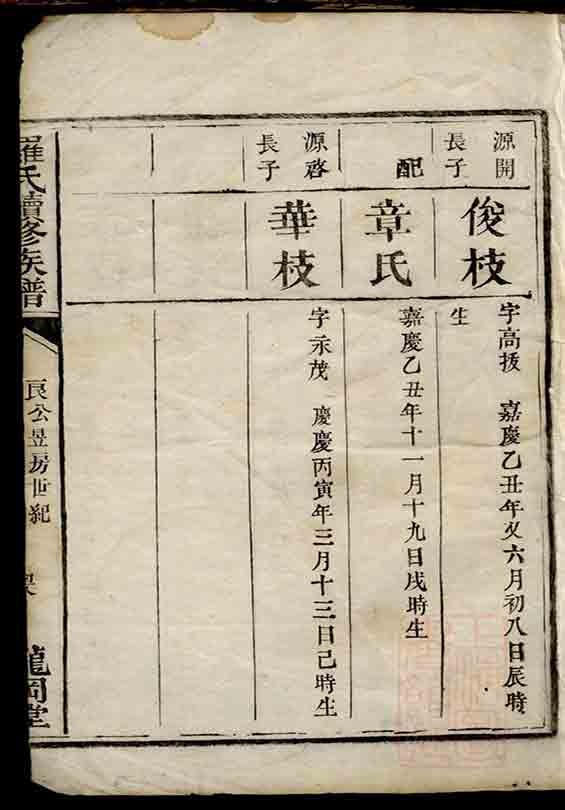 源開
長子
俊枝
字高拔 嘉慶乙丑年又六月初八日辰時
生
配
章氏
嘉慶乙丑年十一月十九日戌時生
源啓
長子
華枝
字永茂 慶慶丙寅年三月十三日己時生
羅氏續修族譜
良公昱房世紀
龍岡堂